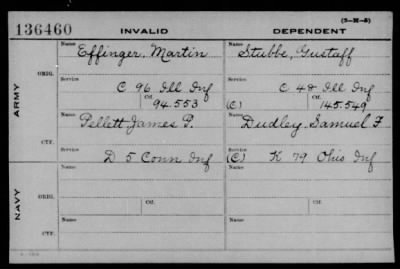 136460 INVALID DEPENDENT (3-H-5)
Name Effinger, Martin Name Stubbe, Gustaff
ARMY ORIG. Service C 96 Ill Inf Service C 48 Ill Inf
Ctf. 94.553 (C) Ctf. 145.549
Name Pellett James P. Name Dudley, Samuel F
CTF. Service D 5 Conn Inf Service (C) K 79 Ohio Inf
NAVY ORIG. Name Name
Service Ctf. Service Ctf.
CTF. Name Name